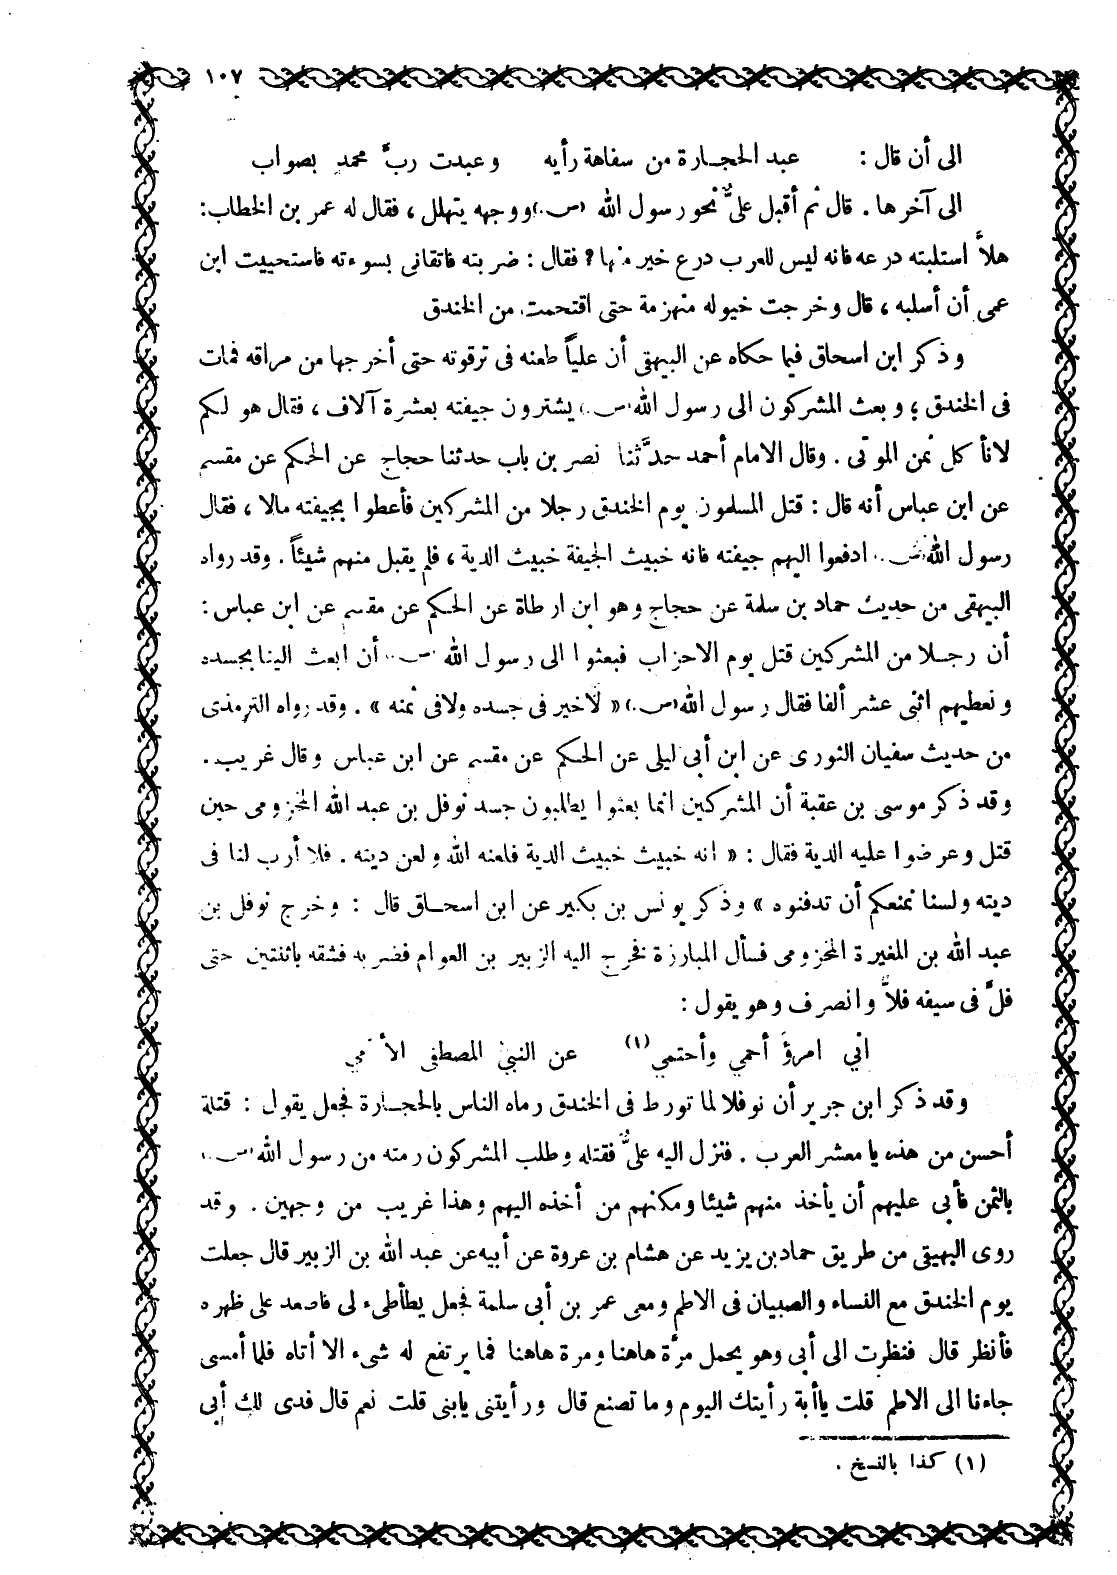 ١٠٧
الى أن قال : عبد الحجارة من سفاهة رأيه وعبدت ربَّ محمد بصواب
الى آخرها . قال ثم أقبل عليٌّ نحو رسول الله (ص.) ووجهه يتهلل ، فقال له عمر بن الخطاب :
هلاَّ استلبته درعه فانه ليس للعرب درع خير منها ? فقال : ضربته فاتقانى بسوءته فاستحييت ابن
عمى أن أسلبه ، قال وخرجت خيوله منهزمة حتى اقتحمت من الخندق
وذكر ابن اسحاق فيما حكاه عن البيهقى أن علياً طعنه فى ترقوته حتى أخرجها من مراقه فمات
فى الخندق ؛ وبعث المشركون الى رسول الله (ص.) يشترون جيفته بعشرة آلاف ، فقال هو لكم
لانأكل ثمن الموتى . وقال الامام أحمد حدَّثنا نصر بن باب حدثنا حجاج عن الحكم عن مقسم
عن ابن عباس أنه قال : قتل المسلمون يوم الخندق رجلا من المشركين فأعطوا بجيفته مالا ، فقال
رسول الله (ص.) ادفعوا اليهم جيفته فانه خبيث الجيفة خبيث الدية ، فلم يقبل منهم شيئاً . وقد رواه
البيهقى من حديث حماد بن سلمة عن حجاج وهو ابن ارطاة عن الحكم عن مقسم عن ابن عباس :
أن رجلا من المشركين قتل يوم الاحزاب فبعثوا الى رسول الله (ص.) أن ابعث الينا بجسده
ونعطيهم اثنى عشر ألفا فقال رسول الله (ص.) « لاخير فى جسده ولافى ثمنه » . وقد رواه الترمذى
من حديث سفيان الثورى عن ابن أبى ليلى عن الحكم عن مقسم عن ابن عباس وقال غريب .
وقد ذكر موسى بن عقبة أن المشركين انما بعثوا يطلبون جسد نوفل بن عبد الله المخزومى حين
قتل وعرضوا عليه الدية فقال : « انه خبيث خبيث الدية فلعنه الله ولعن ديته . فلا أرب لنا فى
ديته ولسنا نمنعكم أن تدفنوه » وذكر يونس بن بكير عن ابن اسحاق قال : وخرج نوفل بن
عبد الله بن المغيرة المخزومى فسأل المبارزة فخرج اليه الزبير بن العوام فضربه فشقه باثنتين حتى
فلَّ فى سيفه فلاًّ وانصرف وهو يقول :
اني امرؤ أحمي وأحتمي (١) عن النبيّ المصطفى الأمي
وقد ذكر ابن جرير أن نوفلا لما تورط فى الخندق رماه الناس بالحجارة فجعل يقول : قتلة
أحسن من هذه يا معشر العرب . فنزل اليه عليٌّ فقتله وطلب المشركون رمته من رسول الله (ص.)
بالثمن فأبى عليهم أن يأخذ منهم شيئا ومكنهم من أخذه اليهم وهذا غريب من وجهين . وقد
روى البهيقى من طريق حماد بن يزيد عن هشام بن عروة عن أبيه عن عبد الله بن الزبير قال جعلت
يوم الخندق مع النساء والصبيان فى الاطم ومعى عمر بن أبى سلمة فجعل يطأطىء لى فاصعد على ظهره
فأنظر قال فنظرت الى أبى وهو يحمل مرَّة هاهنا ومرة هاهنا فما يرتفع له شىء الا أتاه فلما أمسى
جاءنا الى الاطم قلت ياأبة رأيتك اليوم وما تصنع قال ورأيتنى يابنى قلت نعم قال فدى لك أبى
(١) كذا بالنسخ .